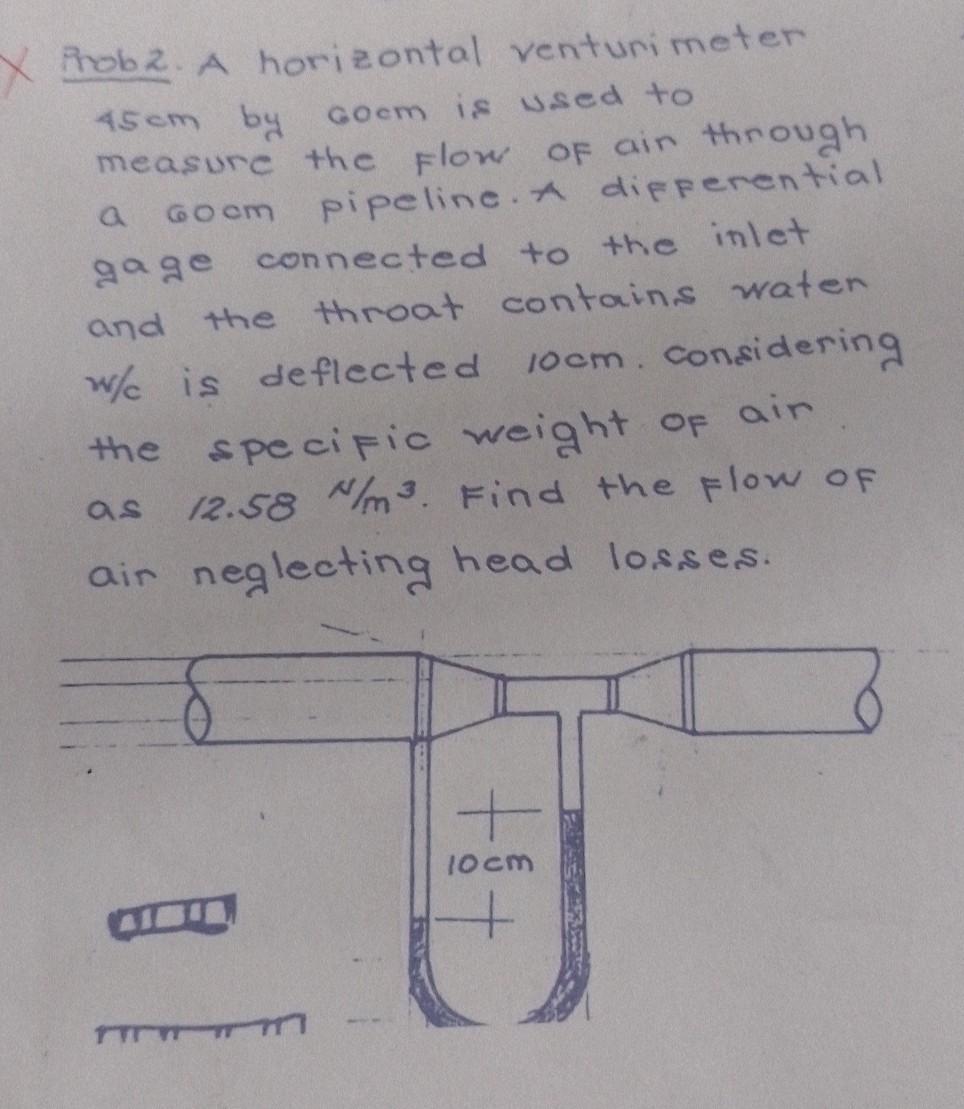 Prob 2. A horizontal venturimeter
45cm by 60cm is used to
measure the flow of air through
a 60cm pipeline. A differential
gage connected to the inlet
and the throat contains water
w/c is deflected 10cm. considering
the specific weight of air
as 12.58 N/m³. Find the flow of
air neglecting head losses.
10cm